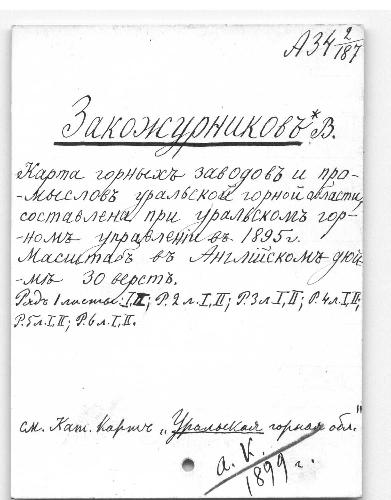 А34 2/187
Закожурниковъ* В.
Карта горныхъ заводовъ и про-
-мысловъ уральской горной области,
составлена при уральскомъ гор-
-номъ управленіи въ 1895 г.
Масштабъ въ Англійскомъ дюй-
-мѣ 30 верстъ.
Рядъ 1 листы: I, II; Р. 2 л. I, II; Р. 3 л I, II; Р. 4 л I, II;
Р. 5 л I, II; Р. 6 л I, II.
см. Кат. Картъ „Уральская горная обл."
а. К.
1899 г.